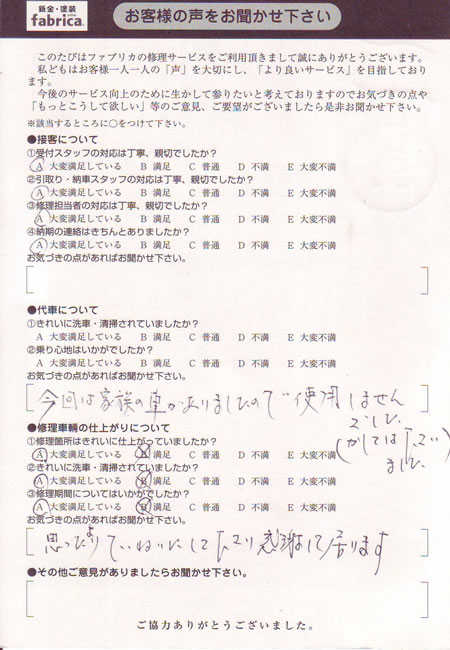 鈑金・塗装
fabrica.
お客様の声をお聞かせ下さい
このたびはファブリカの修理サービスをご利用頂きまして誠にありがとうございます。
私どもはお客様一人一人の「声」を大切にし、「より良いサービス」を目指しております。
今後のサービス向上のために生かして参りたいと考えておりますのでお気づきの点や
「もっとこうして欲しい」等のご意見、ご要望がございましたら是非お聞かせ下さい。
※該当するところに○をつけて下さい。
●接客について
①受付スタッフの対応は丁寧、親切でしたか？
A 大変満足している B 満足 C 普通 D 不満 E 大変不満
②引取り・納車スタッフの対応は丁寧、親切でしたか？
A 大変満足している B 満足 C 普通 D 不満 E 大変不満
③修理担当者の対応は丁寧、親切でしたか？
A 大変満足している B 満足 C 普通 D 不満 E 大変不満
④納期の連絡はきちんとありましたか？
A 大変満足している B 満足 C 普通 D 不満 E 大変不満
お気づきの点があればお聞かせ下さい。
●代車について
①きれいに洗車・清掃されていましたか？
A 大変満足している B 満足 C 普通 D 不満 E 大変不満
②乗り心地はいかがでしたか？
A 大変満足している B 満足 C 普通 D 不満 E 大変不満
お気づきの点があればお聞かせ下さい。
今回は家族の車がありましたので使用しません
でした
(かしては下さい
ました
●修理車輌の仕上がりについて
①修理箇所はきれいに仕上がっていましたか？
A 大変満足している B 満足 C 普通 D 不満 E 大変不満
②きれいに洗車・清掃されていましたか？
A 大変満足している B 満足 C 普通 D 不満 E 大変不満
③修理期間についてはいかがでしたか？
A 大変満足している B 満足 C 普通 D 不満 E 大変不満
お気づきの点があればお聞かせ下さい。
思ったより ていねいにして下さり感謝して居ります
●その他ご意見がありましたらお聞かせ下さい。
ご協力ありがとうございました。